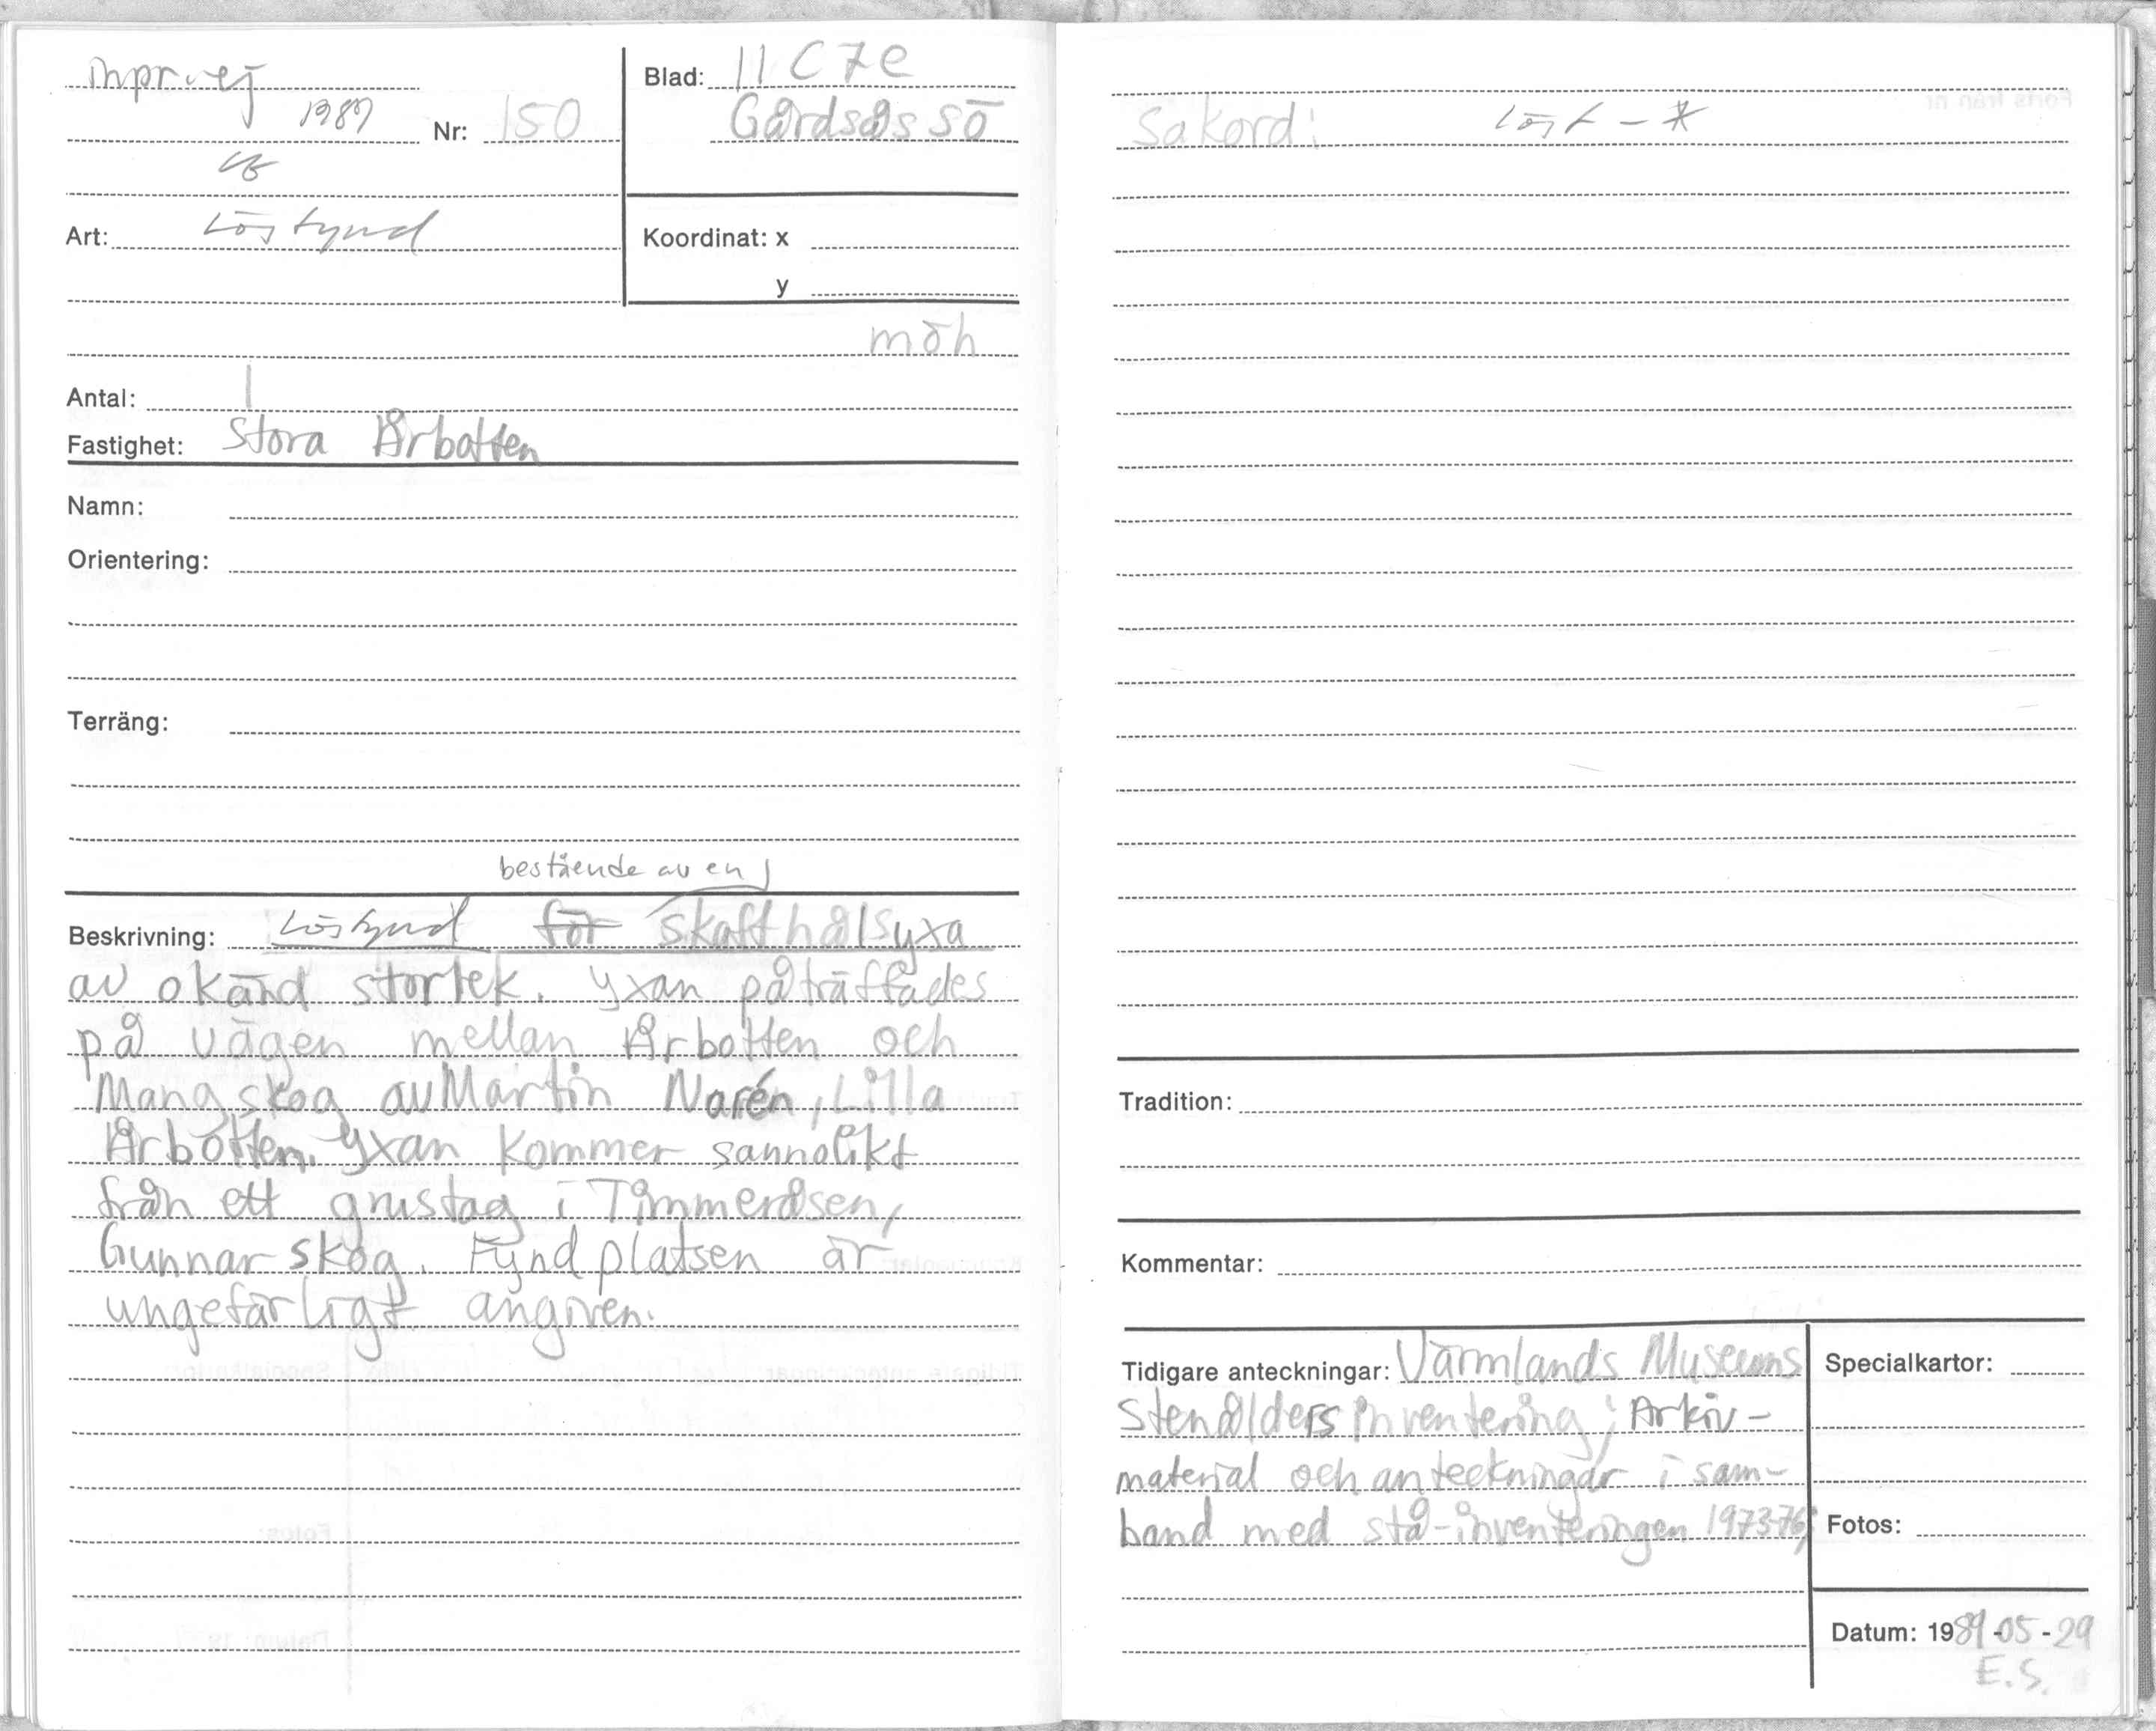 inpr. ej
1989
Nr: 150
Blad: 11 C 7e
Gårdsås SÖ
Art: Lösfynd
Koordinat: x
y
möh
Antal: 1
Fastighet: Stora Årbotten
Namn:
Orientering:
Terräng:
bestående av en
Beskrivning: Lösfynd för skafthålsyxa
av okänd storlek. Yxan påträffades
på vägen mellan Årbotten och
Mangskog av Martin Narén, Lilla
Årbotten. Yxan kommer sannolikt
från ett grustag i Timmeråsen,
Gunnarskog. Fyndplatsen är
ungefärligt angiven.
Forts från nr
Sakord: Lösf - *
Tradition:
Kommentar:
Tidigare anteckningar: Värmlands Museums
stenåldersinventering; Arkiv-
material och anteckningar i sam-
band med stå-inventeringen 1973-76;
Specialkartor:
Fotos:
Datum: 1989-05-29
E.S.